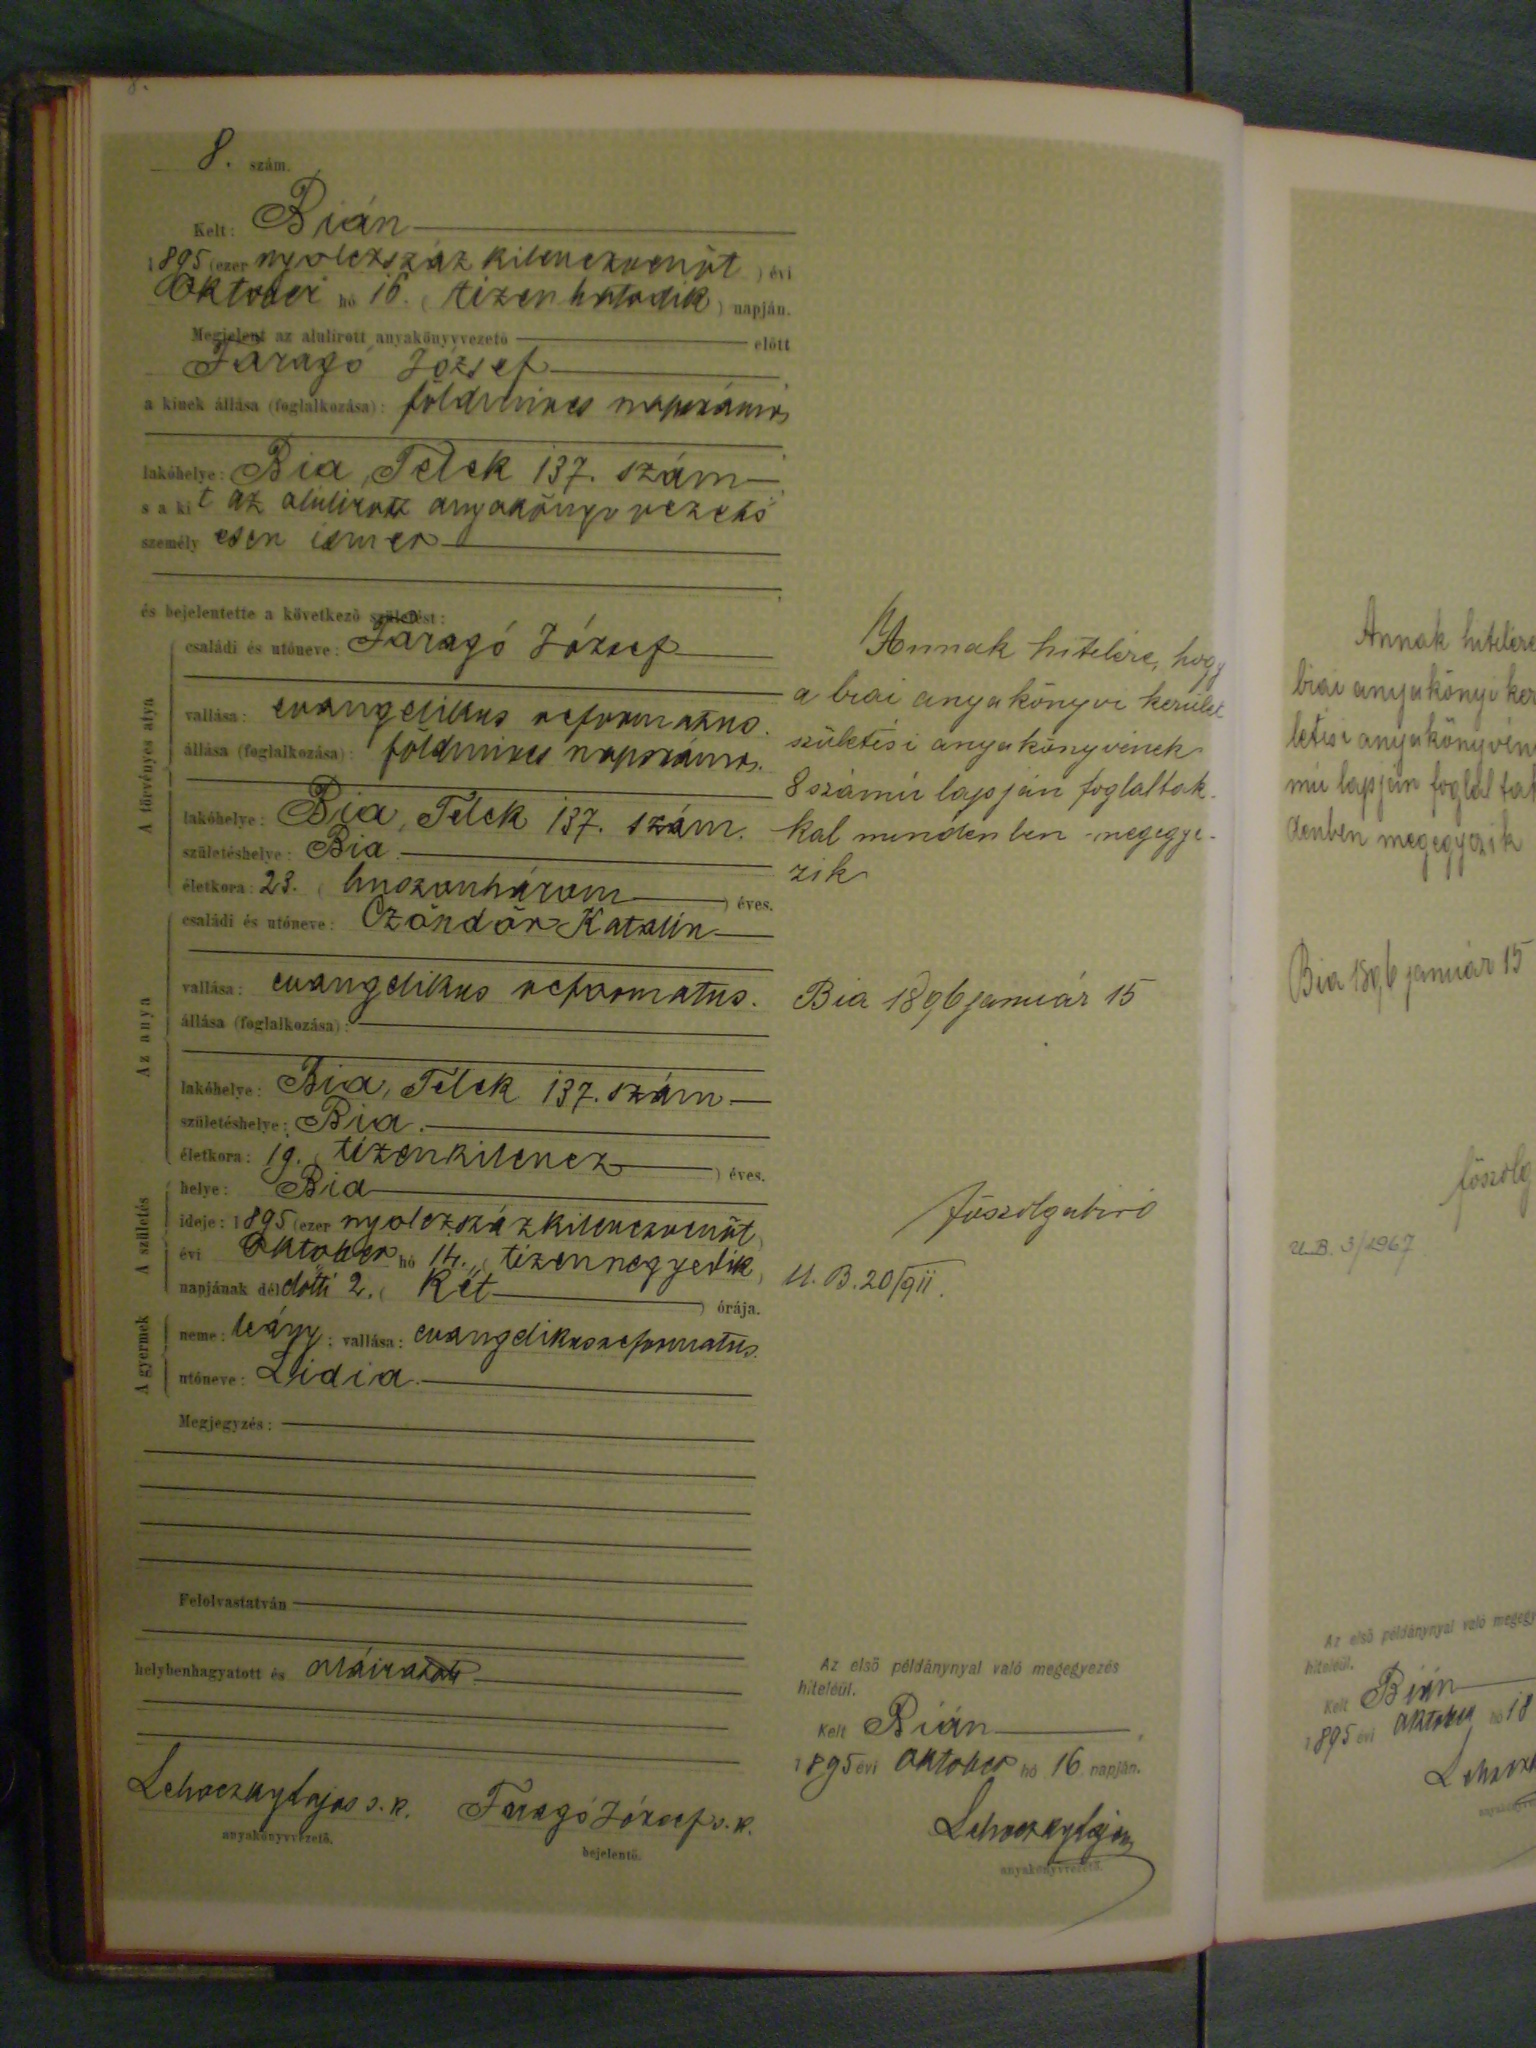 8.
8. szám.
Kelt: Bián
1895 (ezer nyolczszáz kilenczvenöt ) évi
Október hó 16. ( tizenhatodik ) napján.
Megjelent az alulirott anyakönyvvezető előtt
Faragó József
a kinek állása (foglalkozása): földmives napszámos
lakóhelye: Bia, Telek 137. szám
s a kit az alulirott anyakönyvvezető
személyesen ismer
és bejelentette a következő születést:
A törvényes atya
családi és utóneve: Faragó József
vallása: evangelikus reformatus.
állása (foglalkozása): földmives napszámos.
lakóhelye: Bia, Telek 137. szám.
születéshelye: Bia.
életkora: 23. ( huszonhárom ) éves.
Az anya
családi és utóneve: Czöndör Katalin
vallása: evangelikus reformatus.
állása (foglalkozása):
lakóhelye: Bia, Telek 137. szám
születéshelye: Bia.
életkora: 19. ( tizenkilencz ) éves.
A születés
helye: Bia
ideje: 1895 (ezer nyolczszáz kilenczvenöt )
évi Október hó 14. ( tizennegyedik )
napjának délelőtti 2. ( két ) órája.
A gyermek
neme: leány; vallása: evangelikus reformatus.
utóneve: Lidia.
Megjegyzés:
Felolvastatván
helybenhagyatott és aláiratott
Lehoczky Lajos s. k. Faragó József s. k.
anyakönyvvezető. bejelentő.
Annak hitelére, hogy
a biai anyakönyvi kerület
születési anyakönyvének
8 számú lapján foglaltak-
kal mindenben megegye-
zik
Bia 1896 január 15
főszolgabiró
U. B. 20/911.
Az első példánynyal való megegyezés
hiteléül.
Kelt Bián
1895 évi október hó 16 napján.
Lehoczky Lajos
anyakönyvvezető.
Annak hitelére
biai anyakönyvi ker
letési anyakönyvén
mú lapján foglalta
denben megegyezik
Bia 1896 január 15
főszolg
U.B. 3/1967
Az első példánynyal való megegy
hiteléül.
Kelt Bián
1895 évi október hó 18